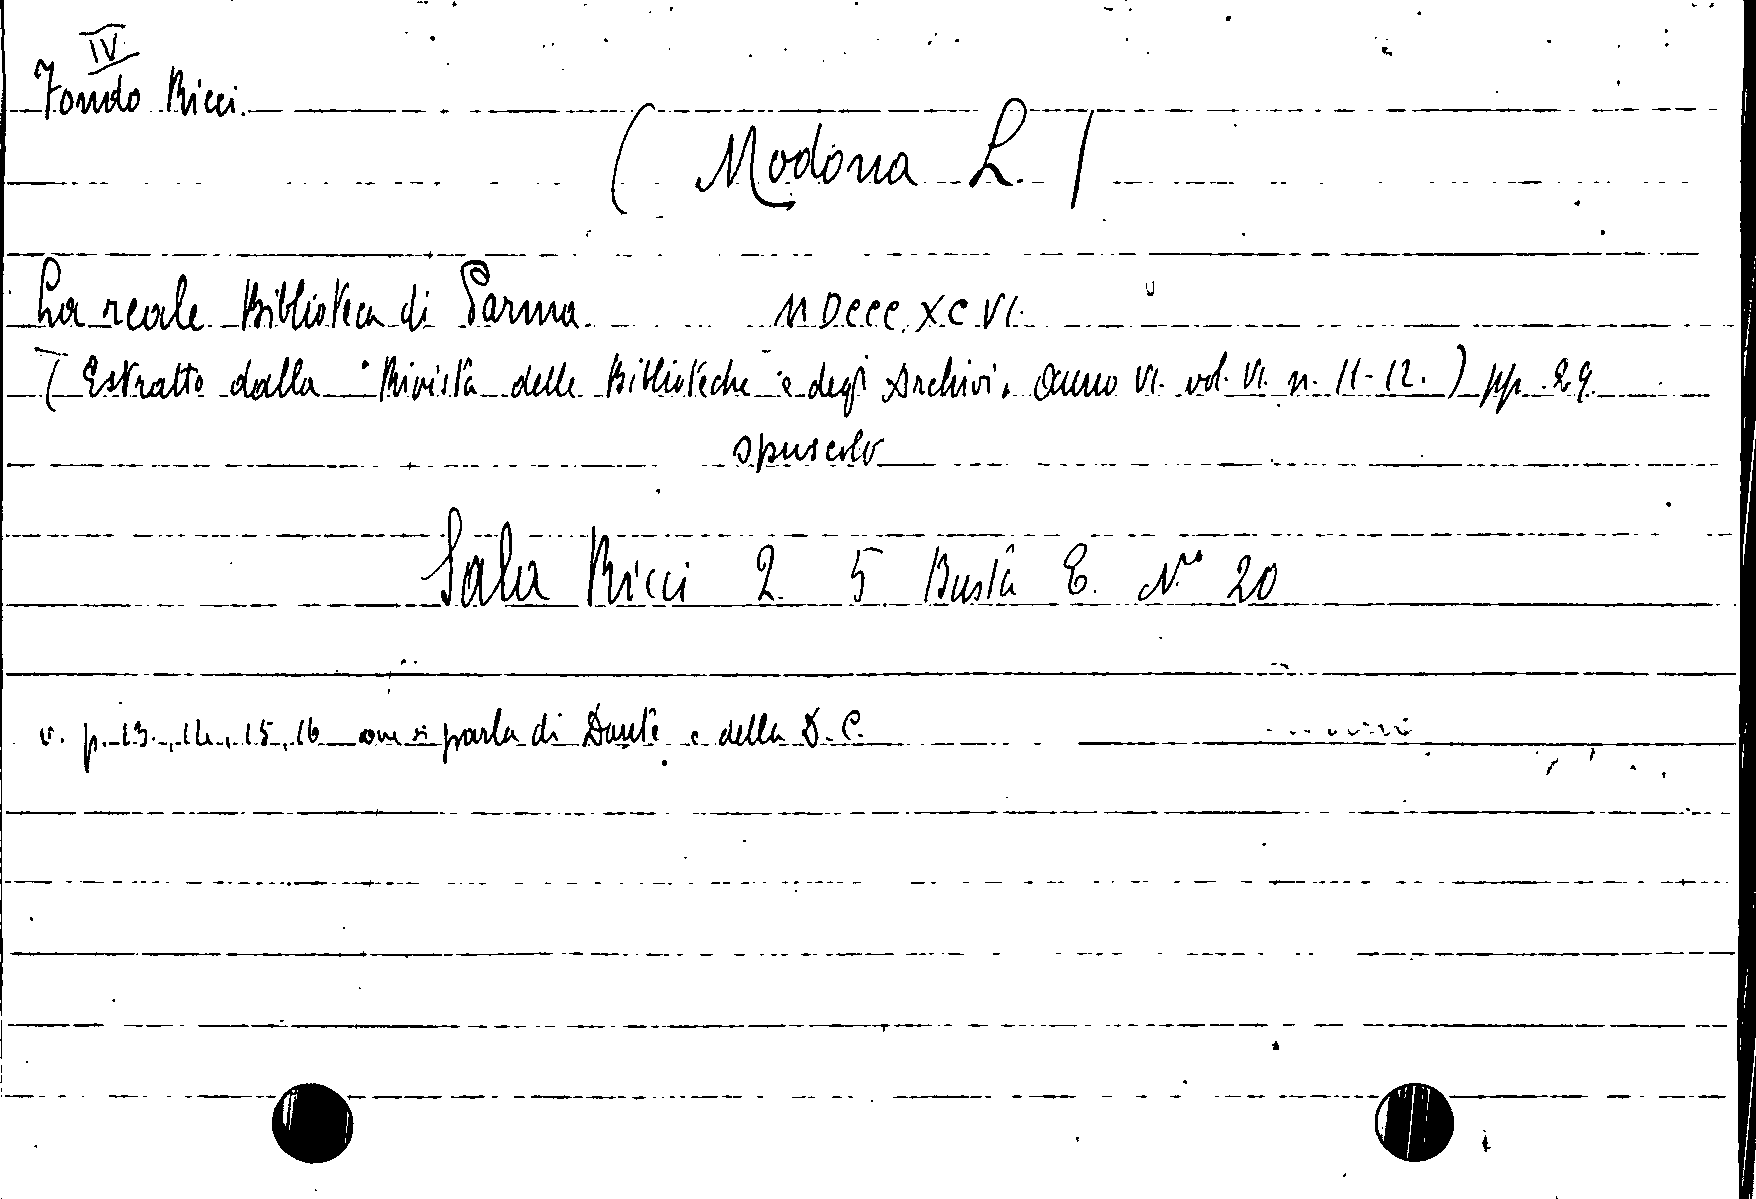 IV
Fondo Ricci.
( Modona L. )
La reale Biblioteca di Parma MDCCCXCVI.
( Estratto dalla "Rivista delle Biblioteche e degli Archivi" anno VI. vol. VI. n. 11-12. ) pp. 29.
opuscolo
Sala Ricci 2. 5 Busta E. N.° 20
v. p. 13, 14, 15, 16 ove si parla di Dante e della D. C.